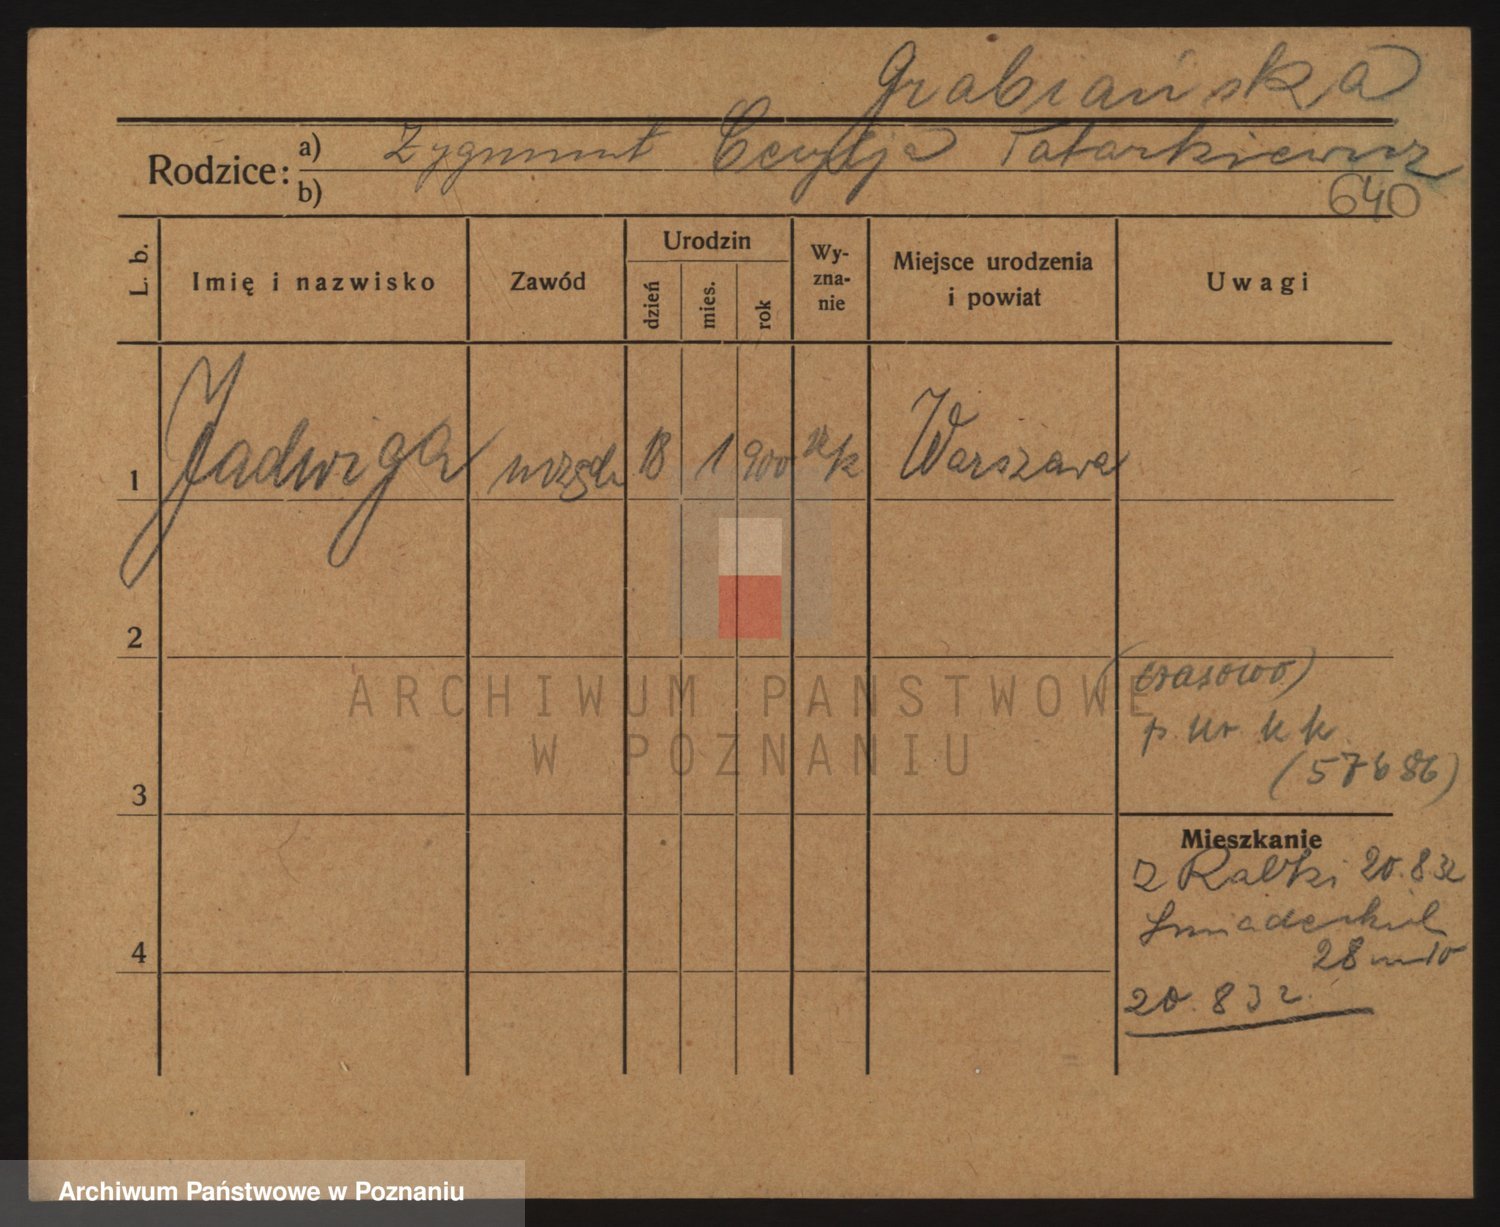 Grabiańska
Rodzice: a) Zygmunt Cecylja Tatarkiewicz
b)
640
L. b.
Imię i nazwisko
Zawód
Urodzin
dzień
mies.
rok
Wy-
zna-
nie
Miejsce urodzenia
i powiat
Uwagi
1 Jadwiga urzędn 18 1 900 rk Warszawa
2
(czasowo)
p. nr k k
(57686)
3
Mieszkanie
z Rabki 20.8 32
Śniadeckich
28 m 10
4
20.8 32.
ARCHIWUM PAŃSTWOWE
W POZNANIU
Archiwum Państwowe w Poznaniu